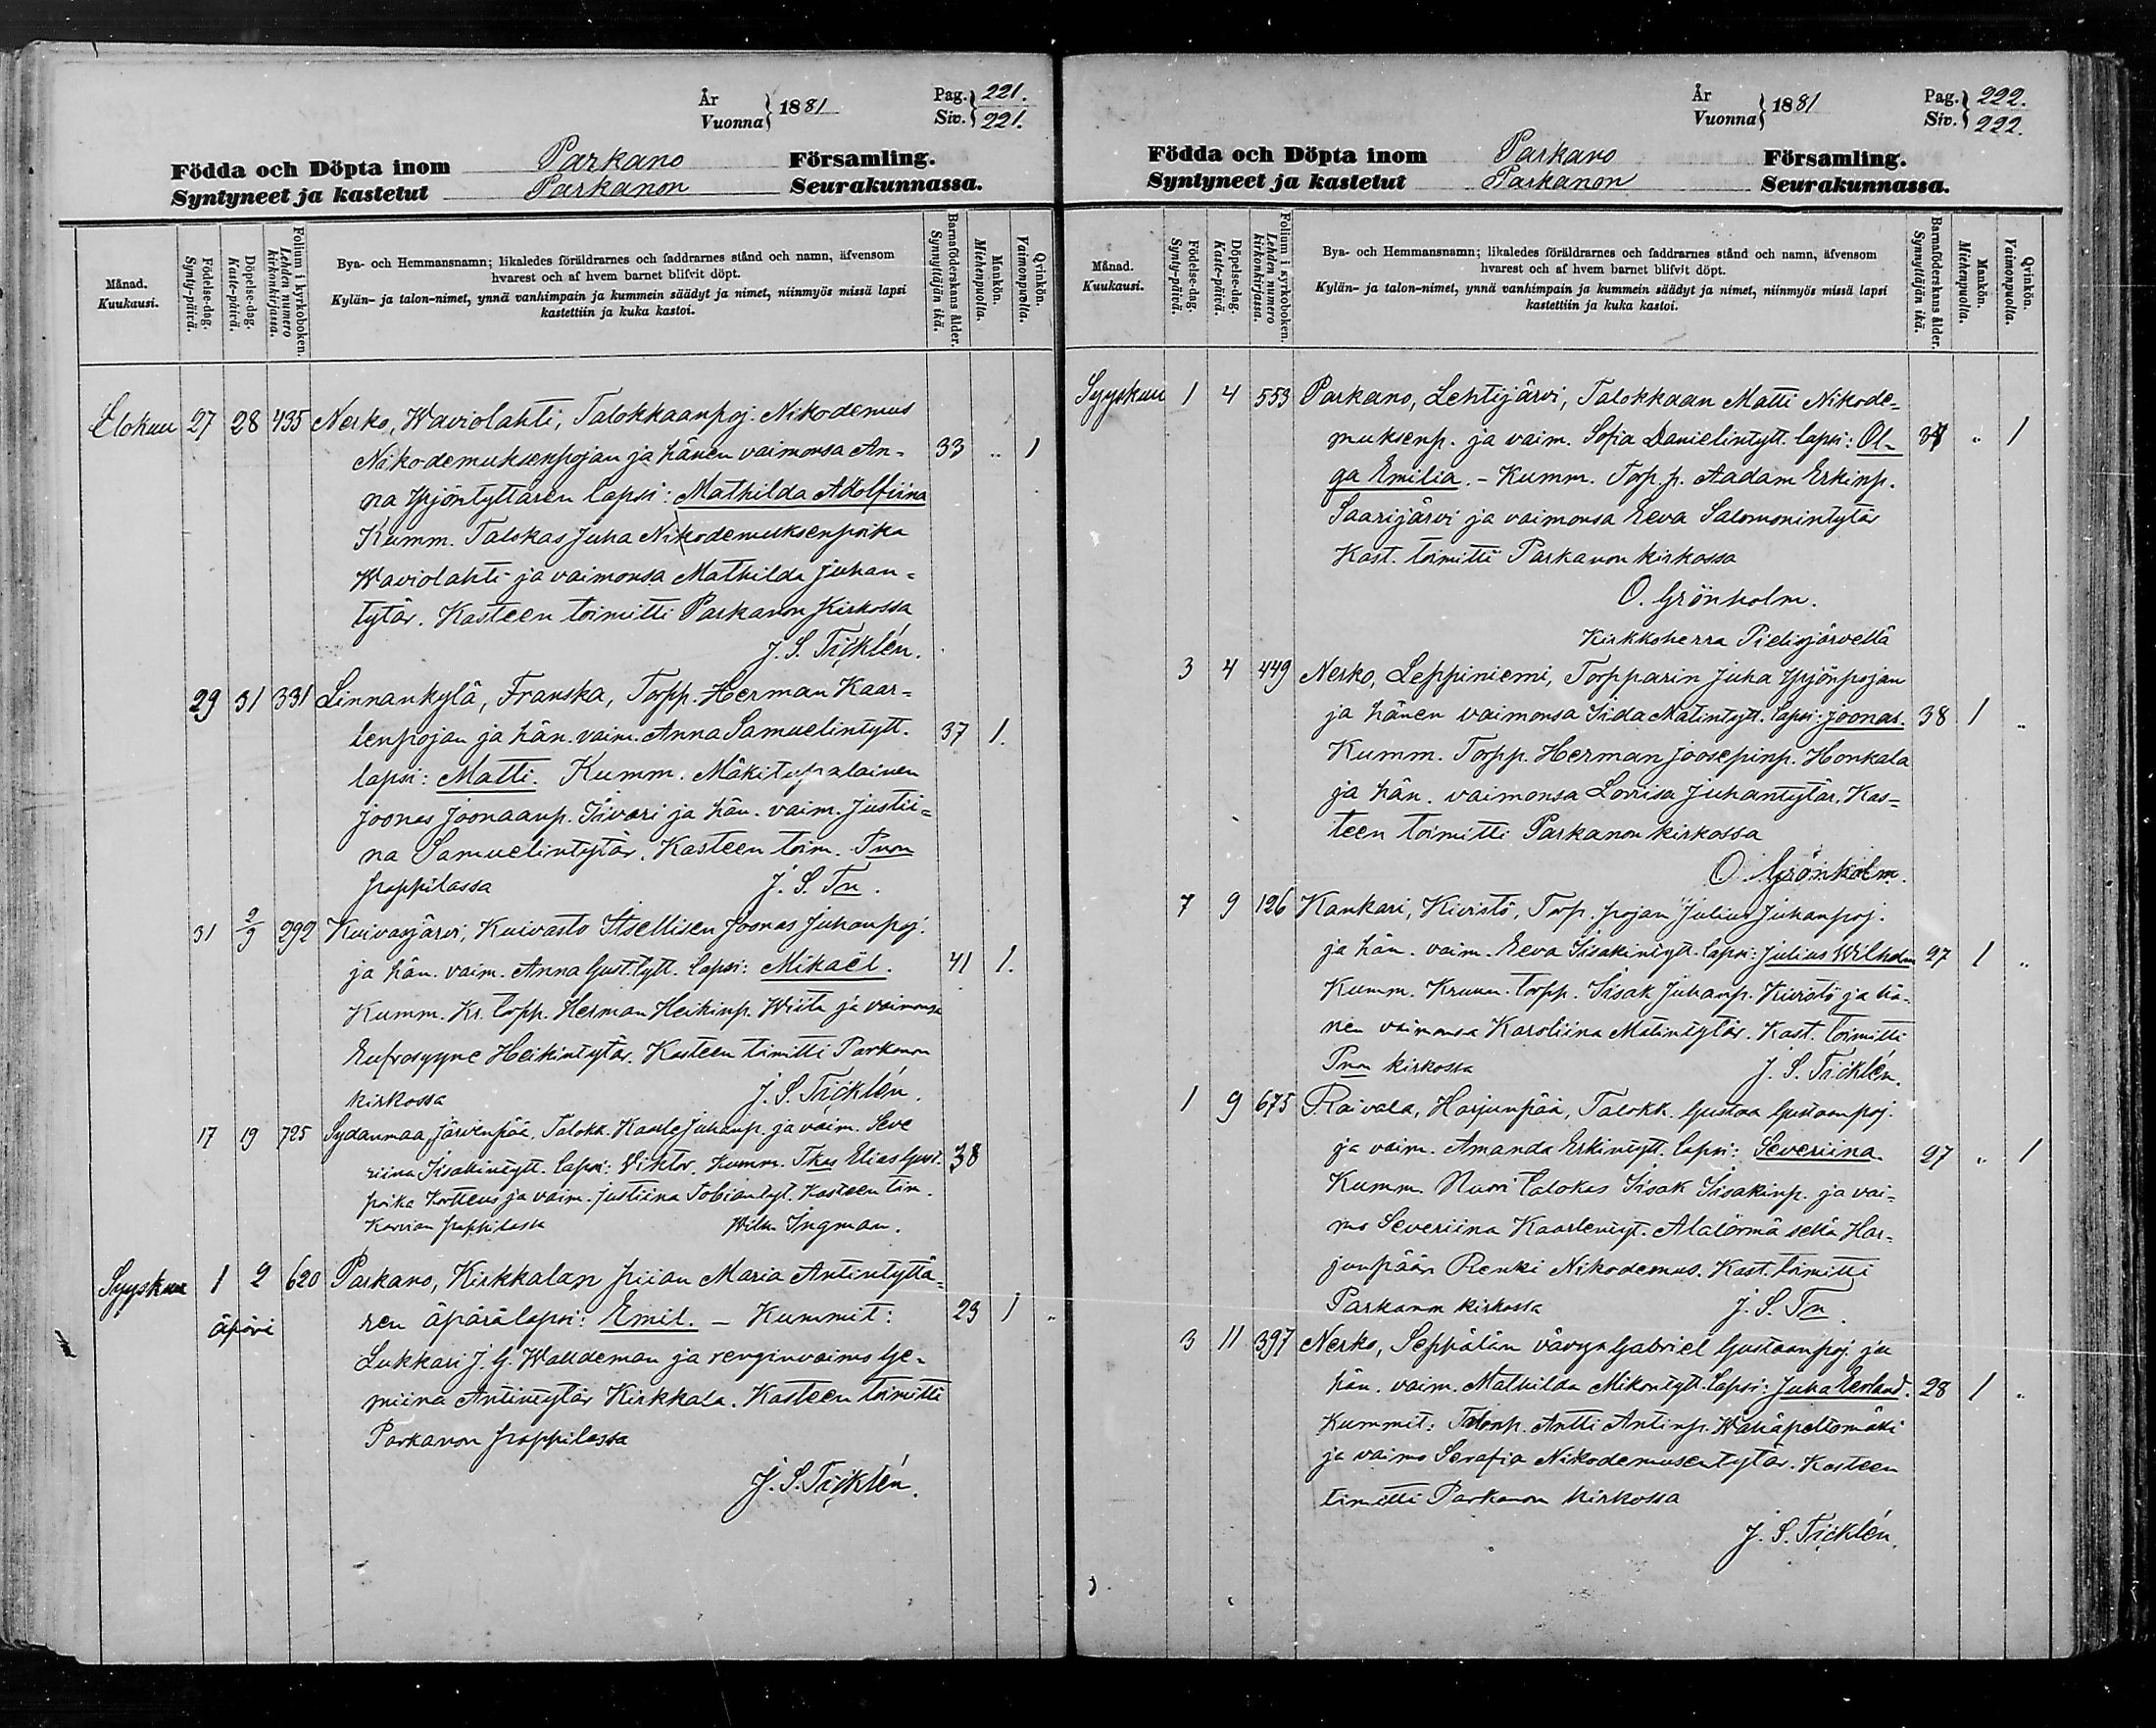 År
Vuonna } 1881
Pag. } 221.
Siv. } 221.
Födda och Döpta inom Parkano Församling.
Syntyneet ja kastetut Parkanon Seurakunnassa.
Månad.
Kuukausi.
Födelse-dag.
Synty-päivä.
Döpelse-dag.
Kaste-päivä.
Folium i kyrkoboken.
Lehden numero
kirkonkirjassa.
Bya- och Hemmansnamn; likaledes föräldrarnes och faddrarnes stånd och namn, äfvensom
hvarest och af hvem barnet blifvit döpt.
Kylän- ja talon-nimet, ynnä vanhimpain ja kummein säädyt ja nimet, niinmyös missä lapsi
kastettiin ja kuka kastoi.
Barnaföderskans ålder.
Synnyttäjän ikä.
Mankön.
Miehenpuolia.
Qvinkön.
Vaimonpuolia.
Elokuu 27 28 435 Nerko, Waviolahti, Talokkaanpoj. Nikodemus
Nikodemuksenpojan ja hänen vaimonsa An- 33 .. 1
na Yrjöntyttären lapsi: Mathilda Adolfiina
Kumm. Talokas Juha Nikodemuksenpoika
Waviolahti ja vaimonsa Mathilda Juhan-
tytär. Kasteen toimitti Parkanon Kirkossa
J. S. Ticklén.
29 31 331 Linnankylä, Franska, Torpp. Herman Kaar-
lenpojan ja hän. vaim. Anna Samuelintytt. 37 1.
lapsi: Matti. Kumm. Mäkitupalainen
Joonas Joonaanp. Iivari ja hän. vaim. Justii-
na Samuelintytär. Kasteen toim. Pnon
pappilassa J. S. Tn.
31 2/9 292 Kuivasjärvi, Kuivasto Itsellisen Joonas Juhanpoj.
ja hän. vaim. Anna Gust.tytt. lapsi: Mikaël. 41 1.
Kumm. Kr. torpp. Herman Heikinp. Wiita ja vaimonsa
Eufrosyyne Heikintytär. Kasteen toimitti Parkanon
kirkossa J. S. Ticklén.
17 19 725 Sydänmaa, Järvenpää, Talokk. Kaarle Juhanp. ja vaim. Seve
riina Iisakintytt. lapsi: Viktor. Kumm. Tkas Elias Gust. 38
poika Kortteus ja vaim. Justiina Tobiantyt. Kasteen tim.
Karvian pappilassa Wilh. Ingman.
Syyskuu 1 2 620 Parkano, Kirkkalan piian Maria Antintyttä-
äpärä ren äpärälapsi: Emil. - Kummit: 23 1 ..
Lukkari J. G. Walldeman ja renginvaimo Ge-
miina Antintytär Kirkkala. Kasteen toimitti
Parkanon pappilassa
J. S. Ticklén.
År
Vuonna } 1881
Pag. } 222.
Siv. } 222.
Födda och Döpta inom Parkano Församling.
Syntyneet ja kastetut Parkanon Seurakunnassa.
Månad.
Kuukausi.
Födelse-dag.
Synty-päivä.
Döpelse-dag.
Kaste-päivä.
Folium i kyrkoboken.
Lehden numero
kirkonkirjassa.
Bya- och Hemmansnamn; likaledes föräldrarnes och faddrarnes stånd och namn, äfvensom
hvarest och af hvem barnet blifvit döpt.
Kylän- ja talon-nimet, ynnä vanhimpain ja kummein säädyt ja nimet, niinmyös missä lapsi
kastettiin ja kuka kastoi.
Barnaföderskans ålder.
Synnyttäjän ikä.
Mankön.
Miehenpuolia.
Qvinkön.
Vaimonpuolia.
Syyskuu 1 4 553 Parkano, Lehtijärvi, Talokkaan Matti Nikode-
muksenp. ja vaim. Sofia Danielintytt. lapsi: Ol- .. 1
ga Emilia. - Kumm. Torp. p. Aadam Erkinp.
Saarijärvi ja vaimonsa Eeva Salomonintytär
Kast. toimitti Parkanon kirkossa
O. Grönholm.
Kirkkoherra Pielisjärvellä
3 4 449 Nerko, Leppiniemi, Torpparin Juha Yrjönpojan
ja hänen vaimonsa Iida Matintytt. lapsi: Joonas. 38 1 ..
Kumm. Torpp. Herman Joosepinp. Honkala
ja hän. vaimonsa Loviisa Juhantytär. Kas-
teen toimitti Parkanon kirkossa
O. Grönholm.
7 9 126 Kankari, Kivistö, Torp. pojan Julius Juhanpoj.
ja hän. vaim. Eeva Iisakintytt. lapsi: Julius Wilhelm 27 1 ..
Kumm. Kruun. torpp. Iisak Juhanp. Kivistö ja hä-
nen vaimonsa Karoliina Matintytär. Kast. toimitti
Pnon kirkossa J. S. Ticklén.
1 9 675 Raivala, Harjunpää, Talokk. Gustaa Gustaanpoj.
ja vaim. Amanda Erkintytt. lapsi: Severiina. 27 .. 1
Kumm. Nuori talokas Iisak Iisakinp. ja vai-
mo Severiina Kaarlentyt. Alatörmä sekä Har-
junpään Renki Nikodemus. Kast. toimitti
Parkanon kirkossa J. S. Tn.
3 11 397 Nerko, Seppälän vävyn Gabriel Gustaanpoj. ja
hän. vaim. Mathilda Mikontytt. lapsi: Juha Eerland. 28 1 ..
Kummit: Talonp. Antti Antinp. Wähäpeltomäki
ja vaimo Serafia Nikodemusentytär. Kasteen
timitti Parkanon kirkossa
J. S. Ticklén.